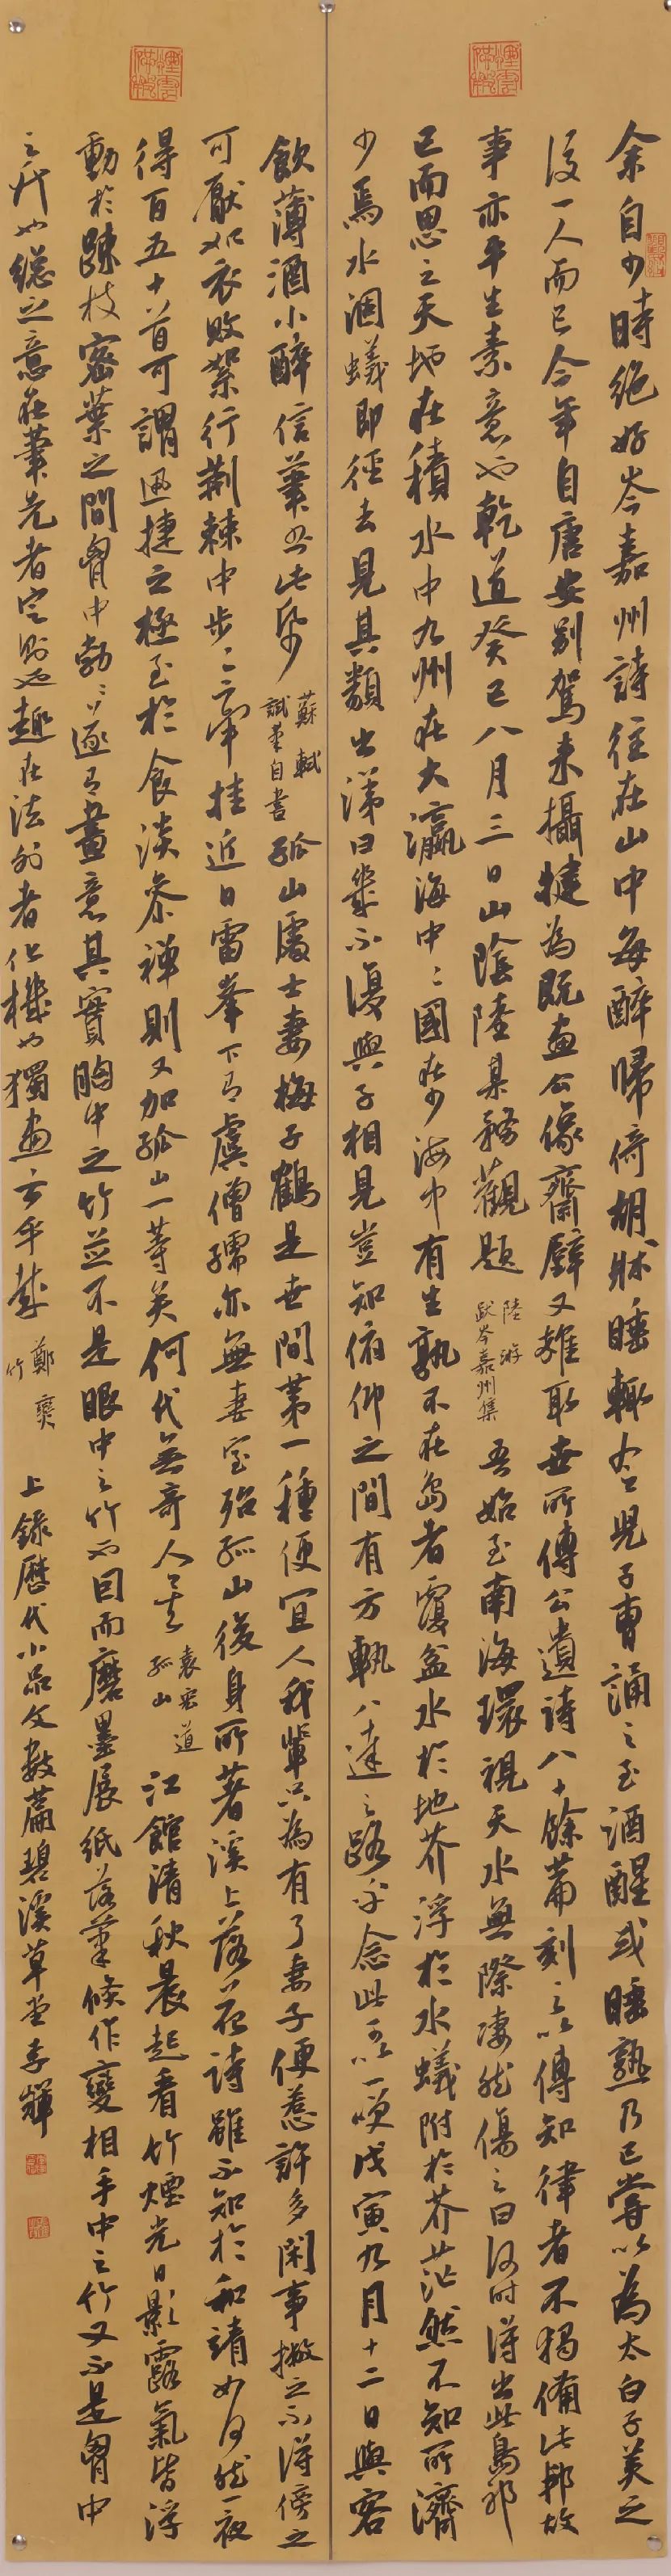 余自少時絕好岑嘉州詩往在山中每醉歸倚胡牀睡輒令兒子曹誦之至酒醒或睡熟乃已嘗以為太白子美之
後一人而已今年自唐安別駕來攝犍為既畫公像齋壁又雜取世所傳公遺詩八十餘篇刻之以傳知律者不獨備此邦故
事亦平生素意也乾道癸巳八月三日山陰陸某務觀題 陸游 跋岑嘉州集 吾始至南海環視天水無際悽然傷之曰何時得出此島耶
已而思之天地在積水中九州在大瀛海中中國在少海中有生孰不在島者覆盆水於地芥浮於水蟻附於芥茫然不知所濟
少焉水涸蟻即徑去見其類出涕曰幾不復與子相見豈知俯仰之間有方軌八達之路乎念此可以一笑戊寅九月十二日與客
飲薄酒小醉信筆書此紙 蘇軾 試筆自書 孤山處士妻梅子鶴是世間第一種便宜人我輩只為有了妻子便惹許多閑事撇之不得傍之
可厭如衣敗絮行荊棘中步步牽掛近日雷峯下有虞僧孺亦無妻室殆孤山後身所著溪上落花詩雖不知於和靖如何然一夜
得百五十首可謂迅捷之極至於食淡參禪則又加孤山一等矣何代無奇人哉 袁宏道 孤山 江館清秋晨起看竹煙光日影露氣皆浮
動於疎枝密葉之間胷中勃勃遂有畫意其實胸中之竹並不是眼中之竹也因而磨墨展紙落筆倏作變相手中之竹又不是胷中
之竹也總之意在筆先者定則也趣在法外者化機也獨畫云乎哉 鄭燮 竹 上錄歷代小品文數篇碧溪草堂李輝